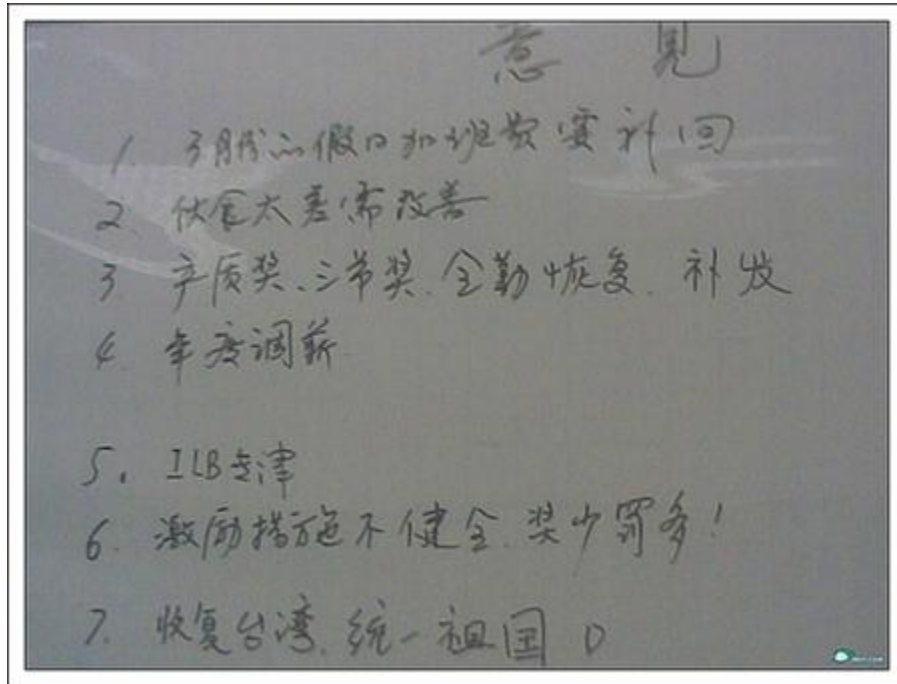 意见
1 3月份假日加班费要补回
2. 伙食太差需改善
3. 产质奖、三节奖、全勤恢复、补发
4. 年度调薪
5. ILB津
6. 激励措施不健全、奖少罚多!
7. 收复台湾、统一祖国